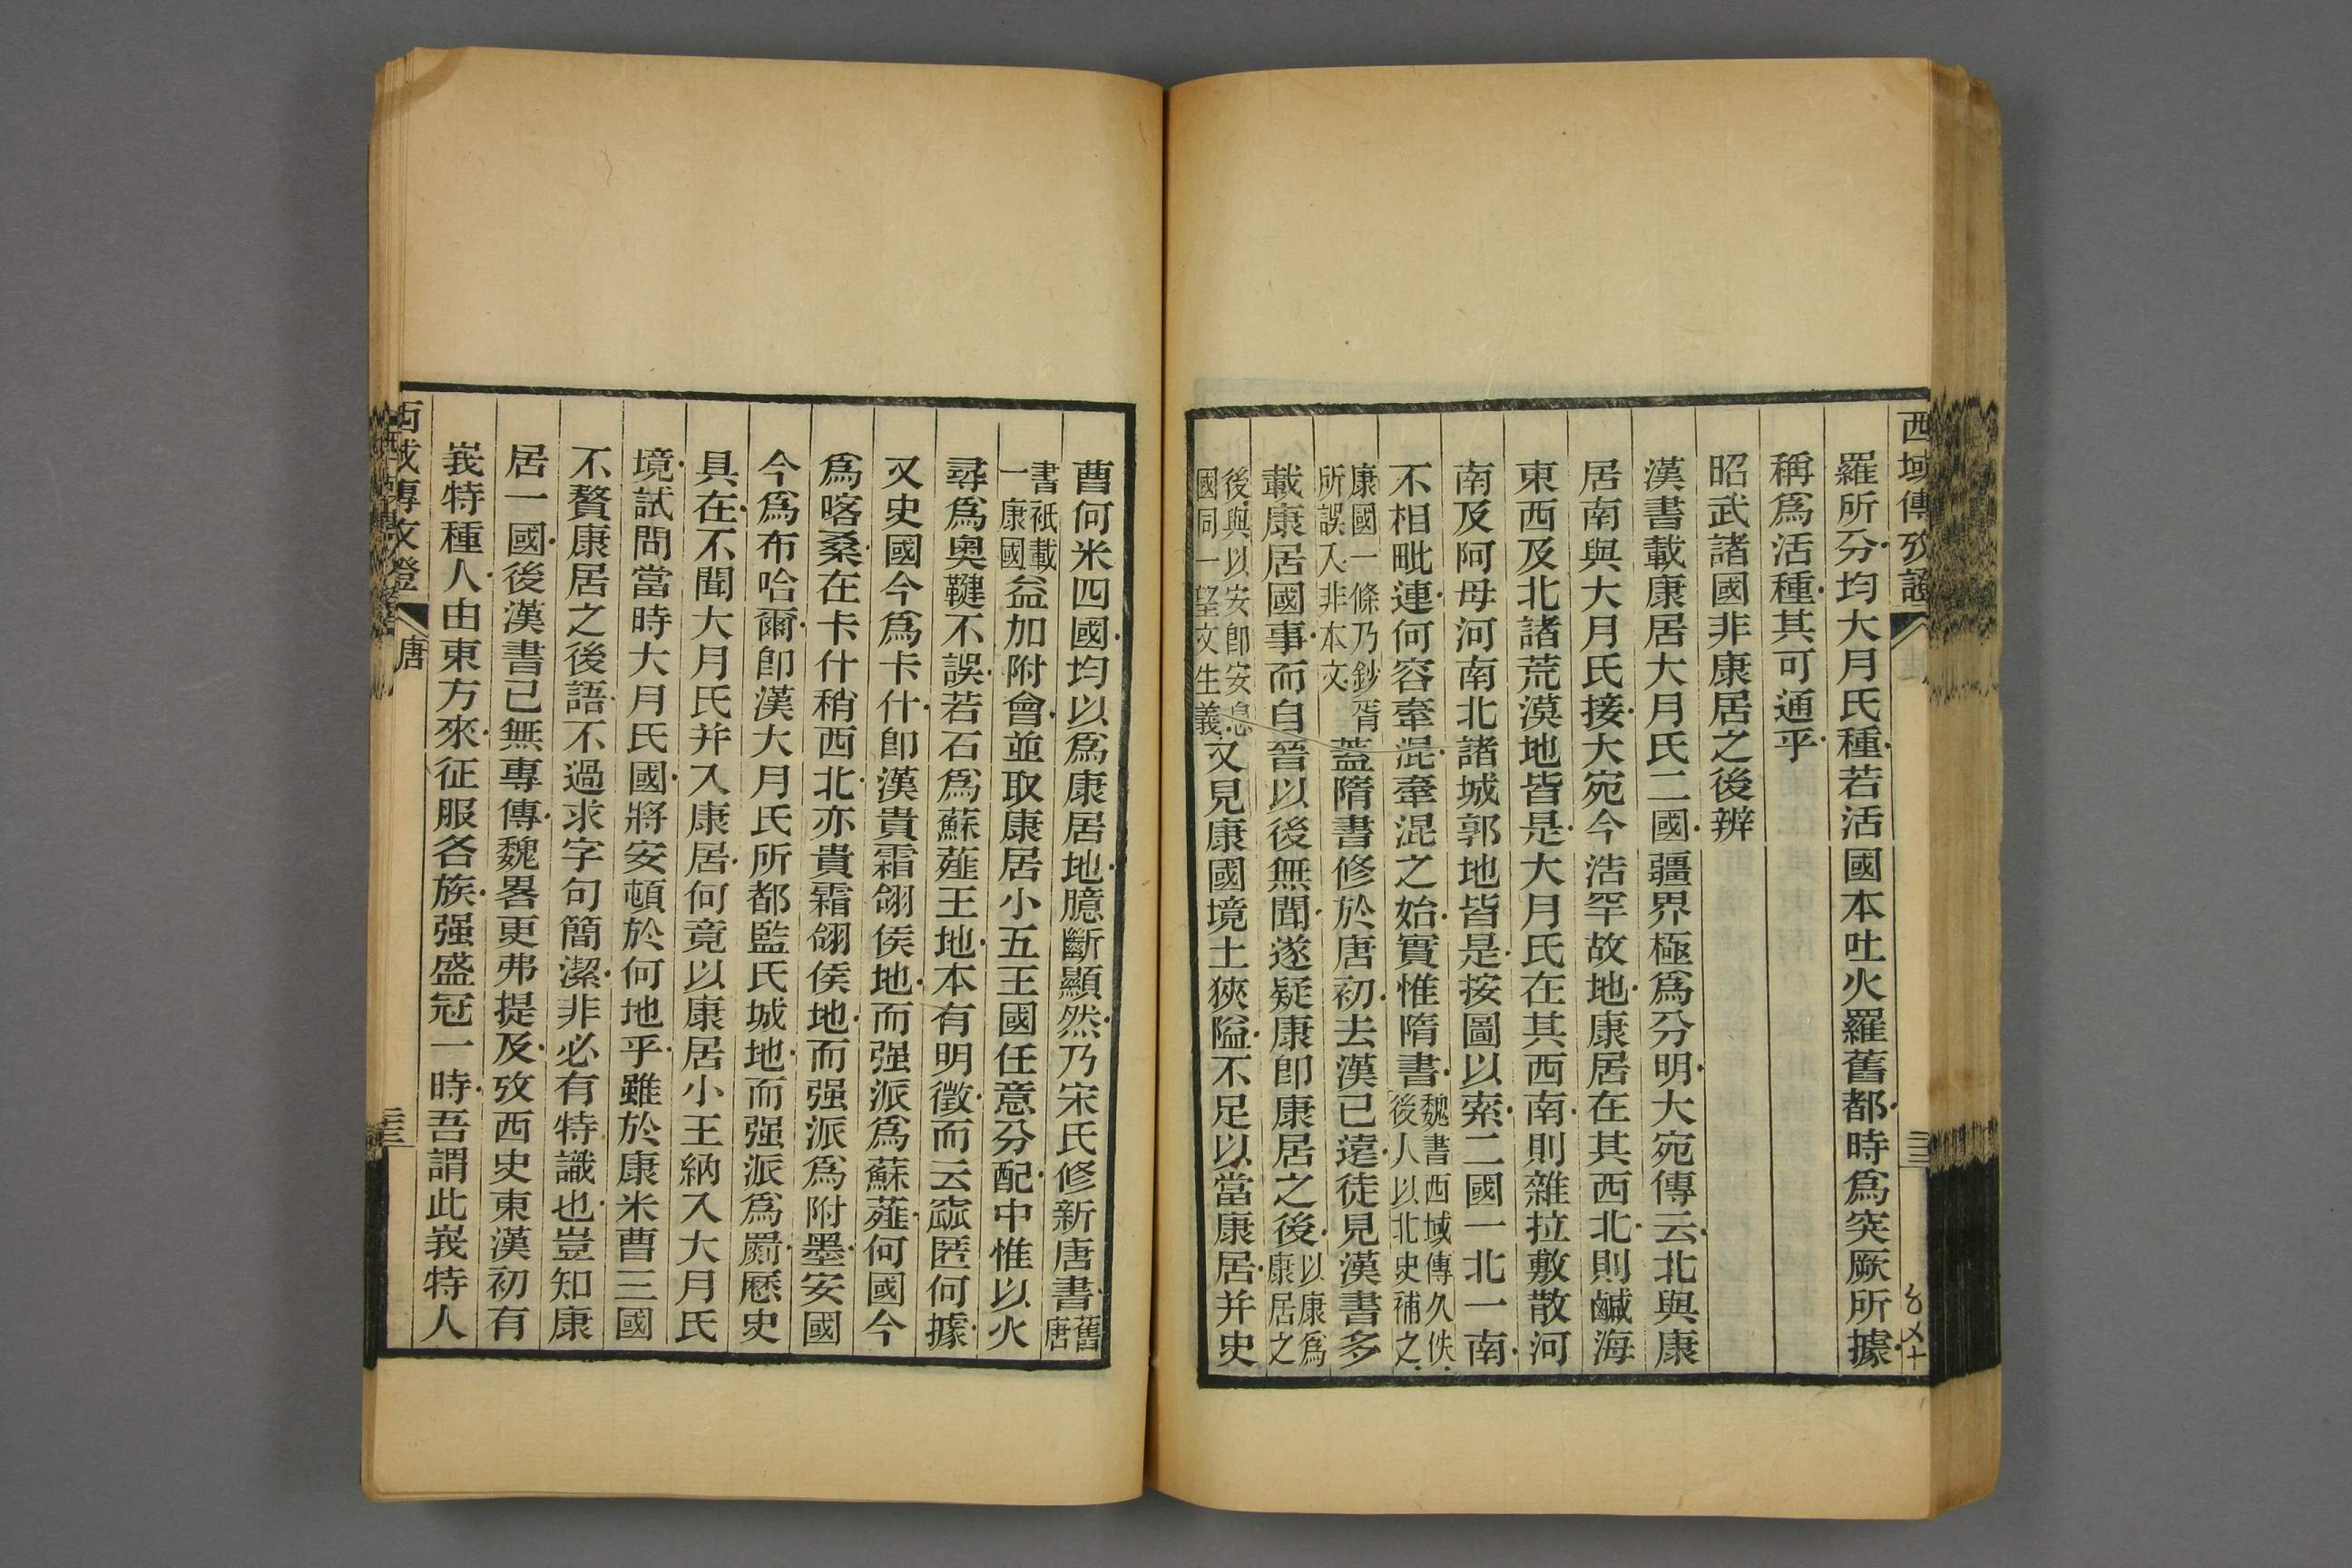 西域傳攷證
羅所分均大月氏種若活國本吐火羅舊都時爲突厥所據
稱爲活種其可通乎
昭武諸國非康居之後辨
漢書載康居大月氏二國疆界極爲分明大宛傳云北與康
居南與大月氏接大宛今浩罕故地康居在其西北則鹹海
東西及北諸荒漠地皆是大月氏在其西南則雜拉敷散河
南及阿母河南北諸城郭地皆是按圖以索二國一北一南
不相毗連何容牽混牽混之始實惟隋書魏書西域傳久佚後人以北史補之
康國一條乃鈔胥所誤入非本文蓋隋書修於唐初去漢已遠徒見漢書多
載康居國事而自晉以後無聞遂疑康卽康居之後以康爲康居之
後與以安卽安息國同一望文生義又見康國境土狹隘不足以當康居并史
曹何米四國均以爲康居地臆斷顯然乃宋氏修新唐書舊唐
書衹載一康國益加附會並取康居小五王國任意分配中惟以火
尋爲奧鞬不誤若石爲蘇薤王地本有明徵而云窳匿何據
又史國今爲卡什卽漢貴霜翎侯地而强派爲蘇薤何國今
爲喀桑在卡什稍西北亦貴霜翎侯地而强派爲附墨安國
今爲布哈爾卽漢大月氏所都監氏城地而强派爲罽歷史
具在不聞大月氏并入康居何竟以康居小王納入大月氏
境試問當時大月氏國將安頓於何地乎雖於康米曹三國
不贅康居之後語不過求字句簡潔非必有特識也豈知康
居一國後漢書已無專傳魏畧更弗提及攷西史東漢初有
峩特種人由東方來征服各族强盛冠一時吾謂此峩特人
西域傳攷證
唐
三三